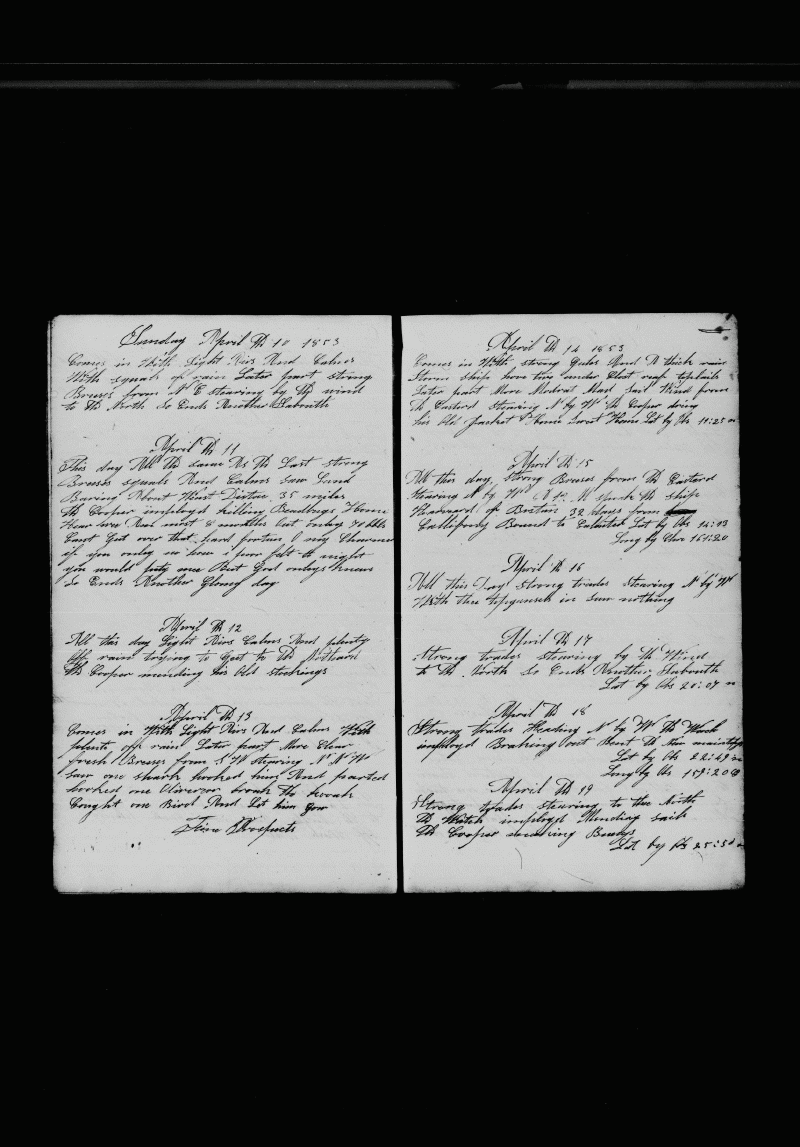 Sunday April Th 10 1853
Comes in With Light Airs And Calms
With squals of rain Later part strong
Breses from N E stearing by Th wind
to Th North So Ends Another Sabouth
April Th 11
This day All Th same As Th Last strong
Breses squals And Calms saw Land
Baring About West Distance 35 miles
Th Cooper imployd killing Home
Hear we Are most 8 months out onley 70 bbls
Cant Get over that hard fortune I may
if you only we have poor felt it might
you would pity me But God onleys knows
So Ends Another Glomy day
April Th 12
All this day Light Airs Calms And plenty
Off rain trying to Get to Th Northard
Th Cooper mending his Old stockings
April Th 13
Comes in With Light Airs And Calms With
plenty off rain Later part More Clear
fresh Breses from S W stearing N N W
saw one shark hooked him And parted
hooked one broak Th
Cought one Bird And Let him Gow
Fine Prospects
April Th 14 1853
Comes in With strong Gales And A thick rain
Storm ships hove two under Clost reaf topsails
Later part More Moderat And fair Wind from
Th Eastard stearing N by W Th Cooper doing
his Old Jacket Home Sweat Home Lat by Obs 11:25 m
April Th 15
All this day strong Breses from Th Eastard
Stearing N by W At M spoak th ship
of Boston 32 days from
Californy Bound to Lat by Obs 14:13
Long by Chro 161:20
April Th 16
All this Day strong trades stearing N by W
With thee in saw nothing
April Th 17
Strong trades stearing by Th Wind
to Th North So Ends Another Sabouth
Lat by Obs 20:07 m
April Th 18
Strong trades Heading N by W Th Wach
imployd Braking out Bent Th New maintop
Lat by Obs 22:49 m
Long by Obs 159:20
April Th 19
Strong trades stearing to thee North
Th Watch imployd Mending sails
Th Cooper
Lat by Obs 25:50